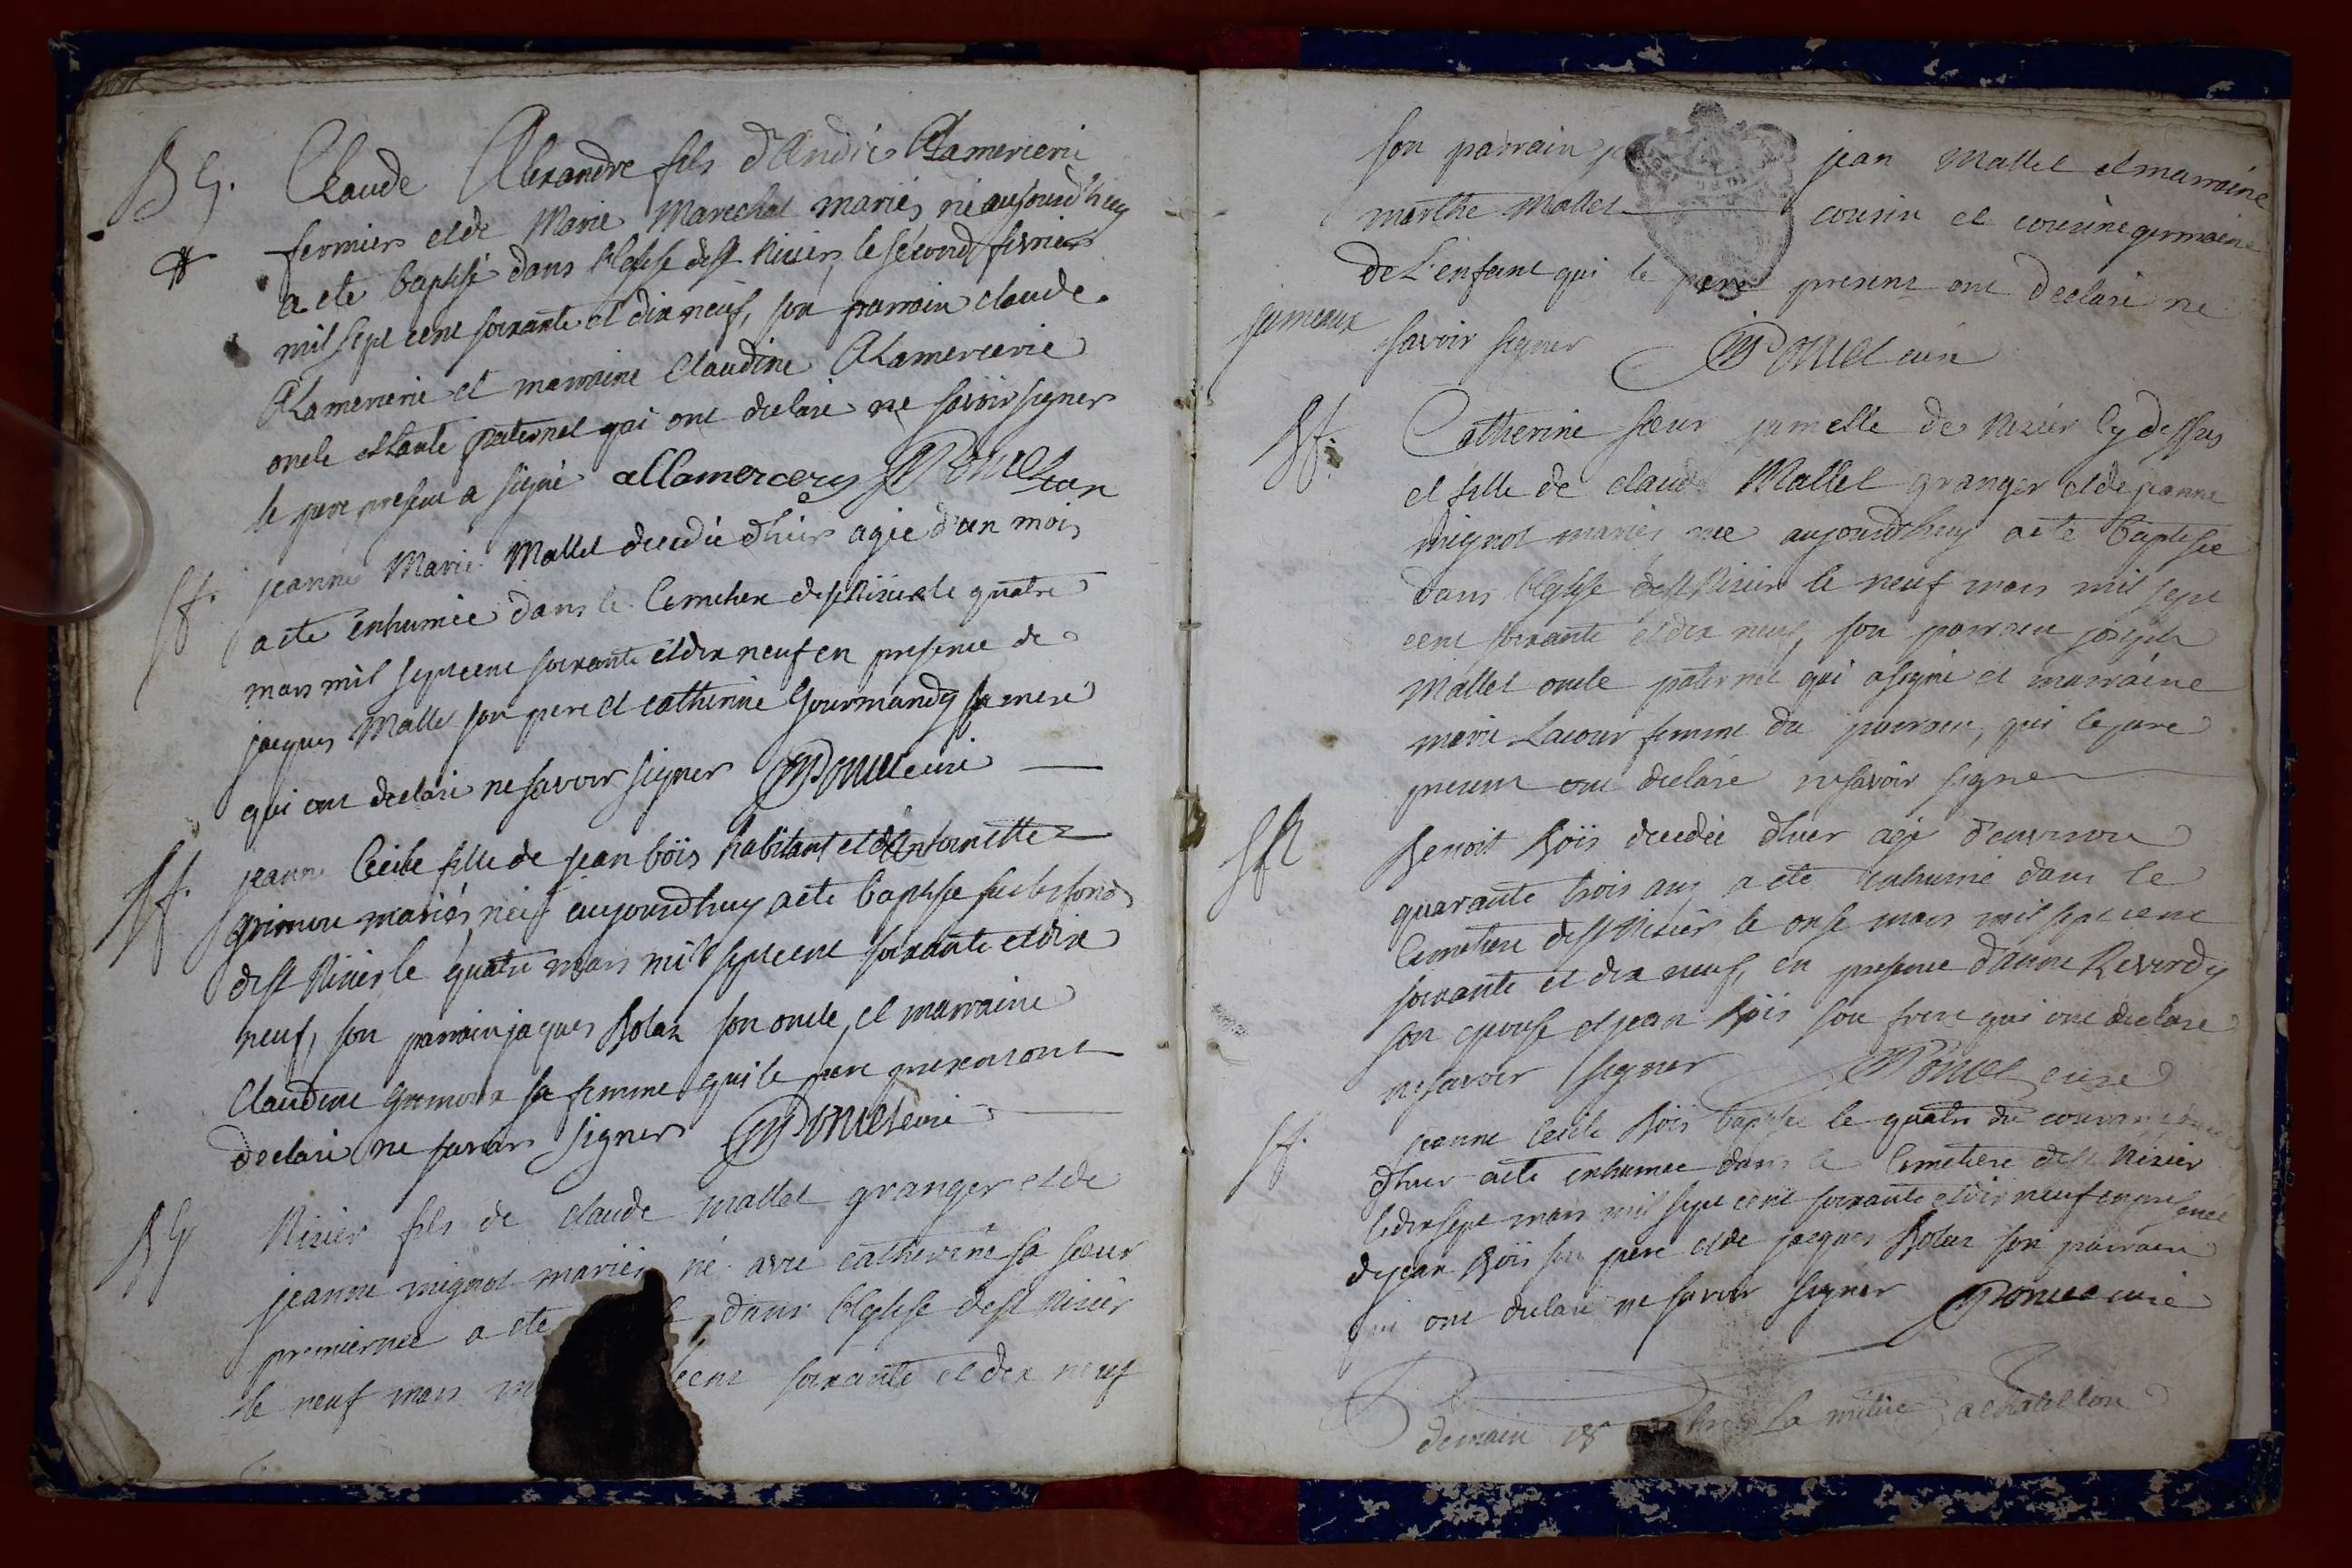 BG. Claude Alexandre fils d'André Alamercerie
fermiers et de Marie Marechal mariés, né aujourdhuy
a eté baptisé dans l'eglise de st Nizier, le second fevrier
mil sept cent soixante et dix neuf, son parrain claude
Alamercerie et marraine Claudine Alamercerie
oncle et tante paternel qui ont declaré ne savoir signer
le pere present a signé allamercery Poncet
Sf. jeanne Marie Mallet decedée d'hier agée d'un mois
a eté enhumée dans le Cemetiere de st Nizier le quatre
mars mil sept cent soixante et dix neuf en presence de
jacques Mallet son pere et catherine Gourmandy sa mere
qui ont declaré ne savoir signer Poncet curé
Bf. jeanne Cecile fille de jean böis habitant et d'Antoinette
grimou mariés, née aujourdhuy a eté baptisée sur les fonds
de st Nizier le quatre mars mil sept cent soixante et dix
neuf, son parrain jaques Bolaz son oncle, et marraine
Claudine Grimoux sa femme qui le pere present ont
declaré ne savoir signer Poncet curé
BG Nizier fils de claude mallet granger et de
jeanne mignot mariés né avec catherine sa sœur
premier née a eté dans l'eglise de st Nizier
le neuf mars cent soixante et dix neuf
son parrain jean Mallet et marraine
marthe Mallet cousin et cousine germaine
de L'enfant qui le pere present ont declaré ne
jumeaux savoir signer Poncet curé
Bf. Catherine sœur jumelle de Nizier cy dessus
et fille de claude Mallet granger et de jeanne
mignot mariés née aujourdhuy a eté baptisée
dans l'eglise de st Nizier le neuf mars mil sept
cent soixante et dix neuf, son parrain joseph
Mallet oncle paternel qui a signé et marraine
marie Lacour femme du parrain, qui le pere
present ont declaré ne savoir signer
Benoit Böis decedé d'hier agé d'environ
quarante trois ans a eté enhumé dans le
Cemetiere de st Nizier le onse mars mil sept cent
soixante et dix neuf, en presence d'anne Reverdy
son epouse et jean Böis son frere qui ont declaré
ne savoir signer Poncet curé
Sf. jeanne Cecile Böis baptisée le quatre du courant
d'hier a eté enhumée dans le Cemetiere de st Nizier
le dix sept mars mil sept cent soixante et dix neuf en presence
de jean Böis son pere et de jacques Bolaz son parrain
qui ont declaré ne savoir signer Poncet curé
demain 18 La milice a chatillon